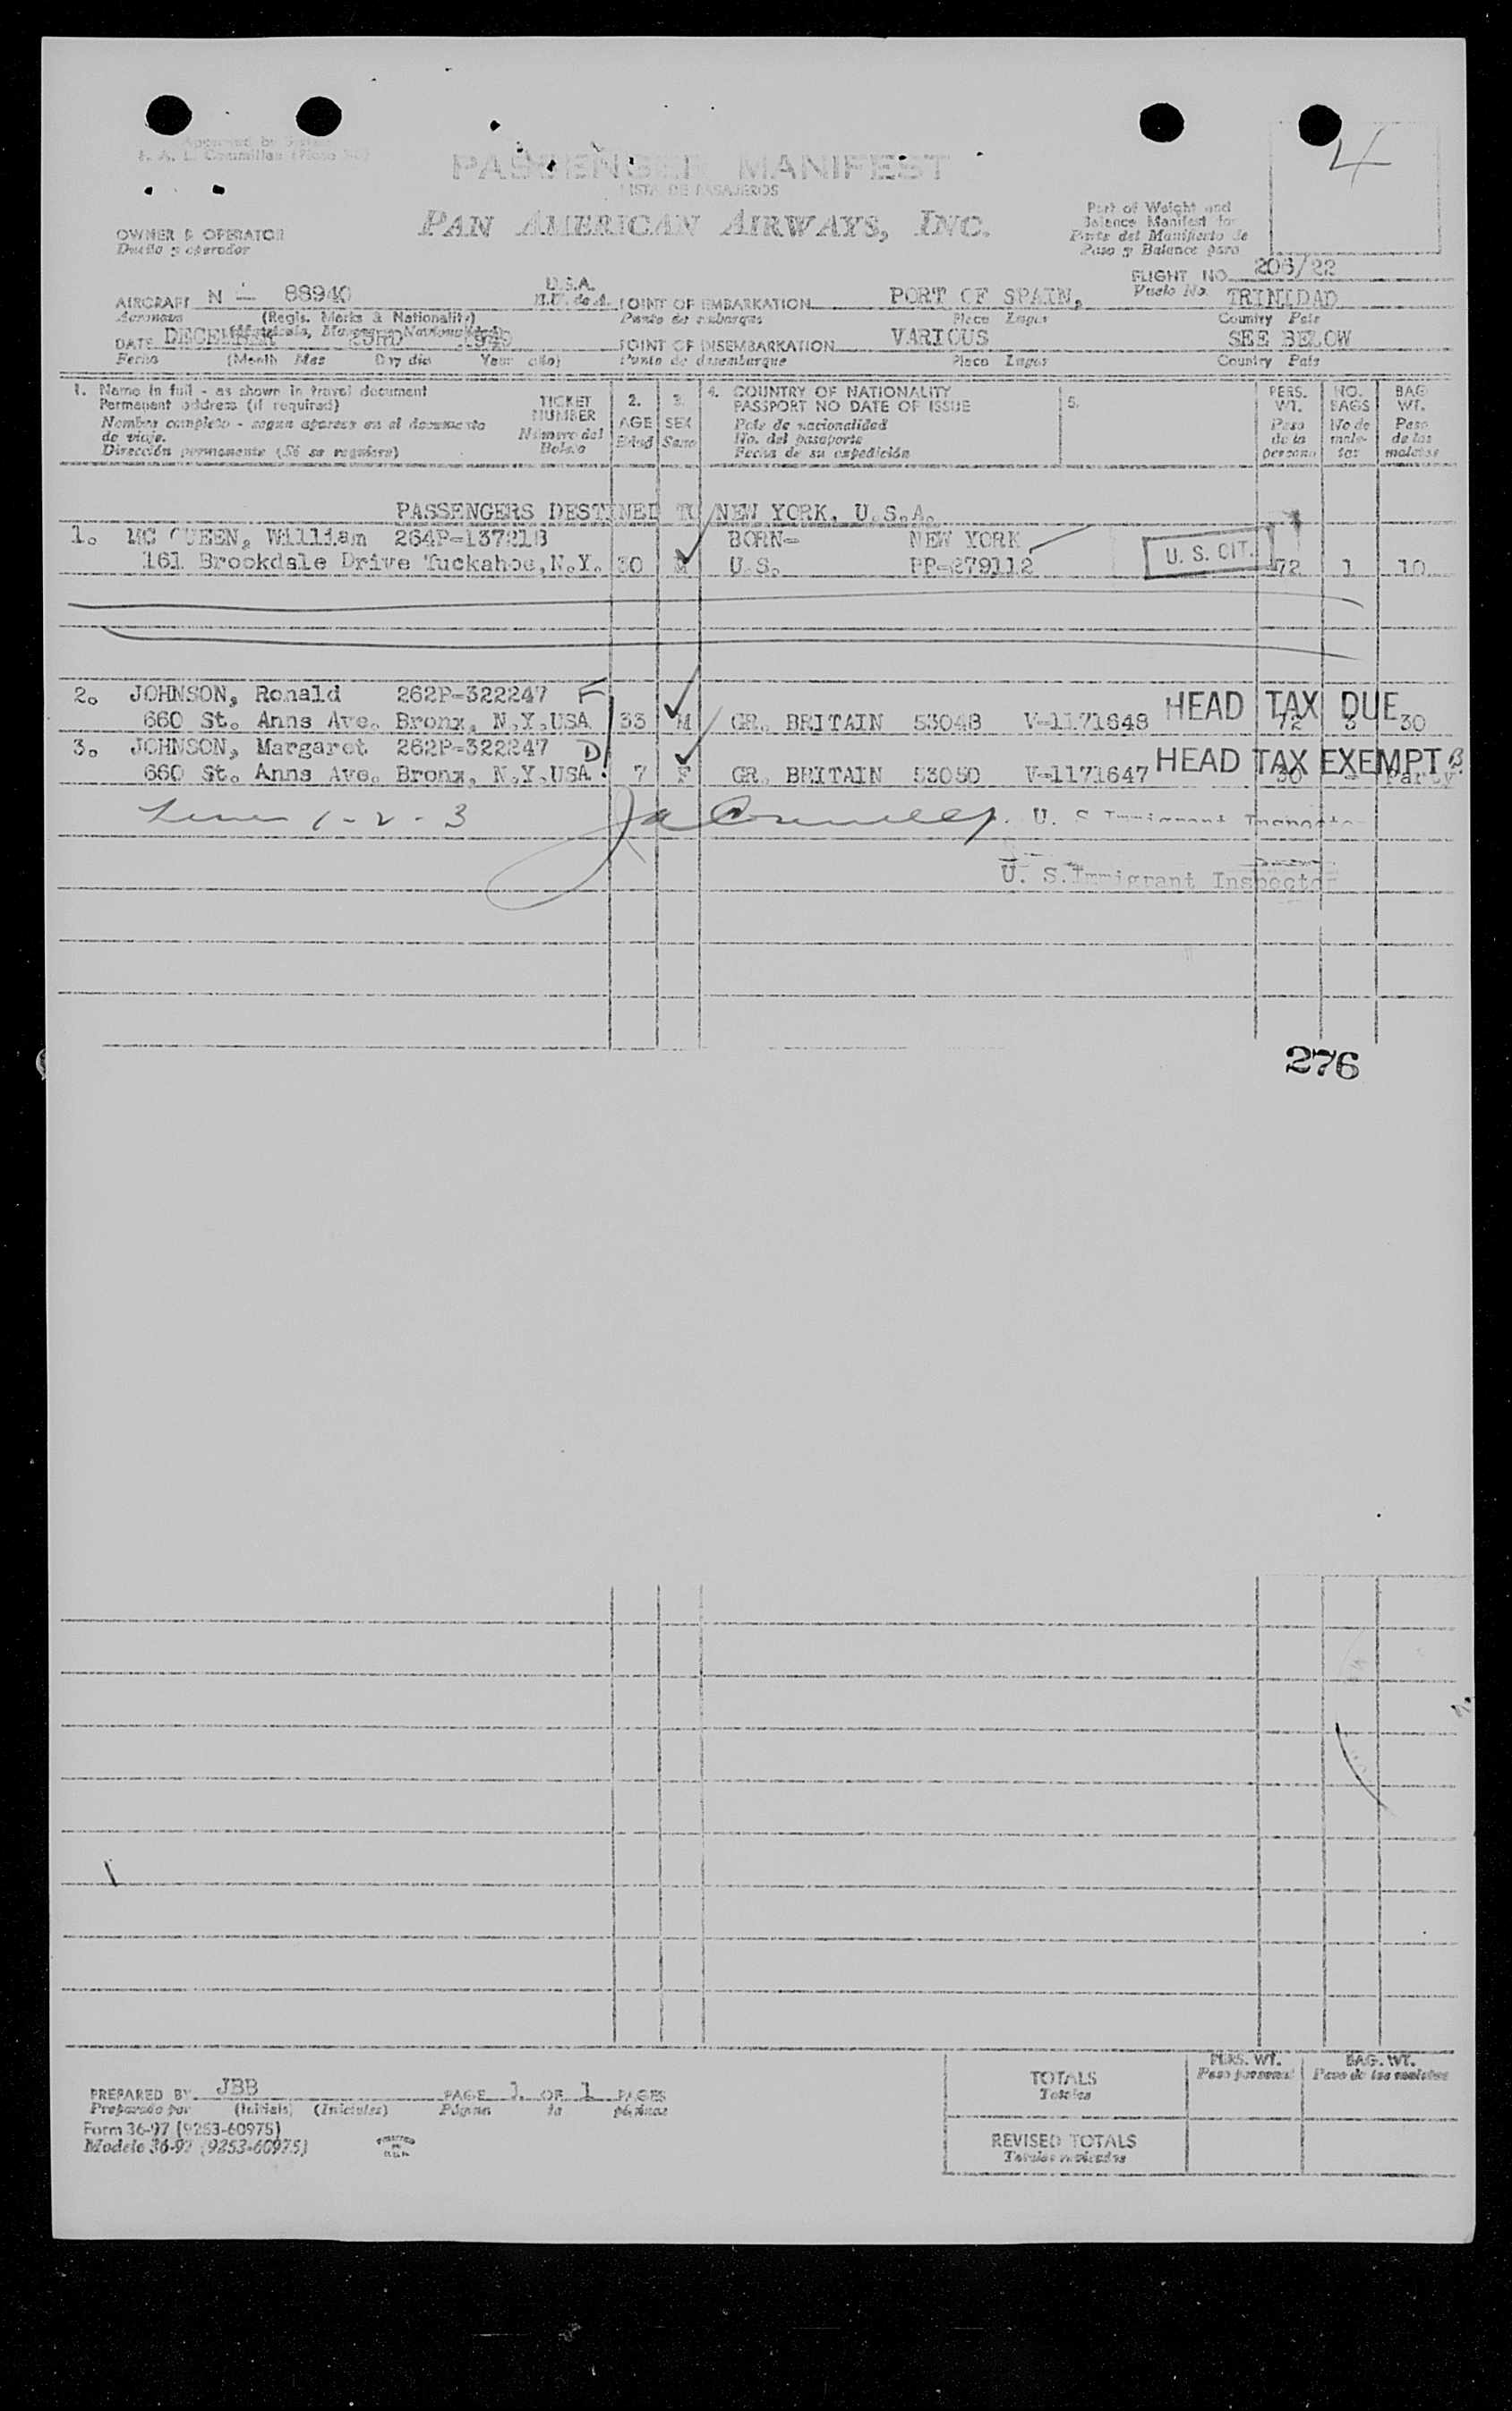 4
PASSENGER MANIFEST
LISTA DE PASAJEROS
PAN AMERICAN AIRWAYS, INC.
Part of Weight and
Balance Manifest for
Parte del Manifiesto de
Peso y Balance para
OWNER & OPERATOR
Dueño y operador
FLIGHT NO. 206/22
Vuelo No.
AIRCRAFT N - 88940 U.S.A. POINT OF EMBARKATION PORT OF SPAIN, TRINIDAD
Aeronave (Regis. Marks & Nationality) Punto de embarque Place Lugar Country Pais
DATE DECEMBER 23RD 1949 POINT OF DISEMBARKATION VARIOUS SEE BELOW
Fecha (Month Mes Day dia Year año) Punto de desembarque Place Lugar Country Pais
1. Name in full - as shown in travel document
Permanent address (if required)
Nombre completo - segun aparece en el documento
de viaje.
Dirección permanente (Si se requiere)
TICKET
NUMBER
Número del
Boleto
2.
AGE
Edad
3.
SEX
Sexo
4. COUNTRY OF NATIONALITY
PASSPORT NO DATE OF ISSUE
Pais de nacionalidad
No. del pasaporte
Fecha de su expedición
5.
PERS.
WT.
Peso
de la
persona
NO.
BAGS
No de
male-
tas
BAG
WT.
Peso
de las
maletas
PASSENGERS DESTINED TO NEW YORK, U.S.A.
1. MC QUEEN, William 264P-137218 BORN- NEW YORK
161 Brookdale Drive Tuckahoe, N.Y. 30 M U.S. PP-279112 U. S. CIT. 72 1 10
2. JOHNSON, Ronald 262P-322247 F HEAD TAX DUE
660 St. Anns Ave. Bronx, N.Y.USA 33 M GR. BRITAIN 53048 V-1171648 72 3 30
3. JOHNSON, Margaret 262P-322247 D HEAD TAX EXEMPT
660 St. Anns Ave. Bronx, N.Y.USA. 7 F GR. BRITAIN 53050 V-1171647 30 - Party
1 - 2 - 3 U. S Immigrant Inspector
U. S. Immigrant Inspector
276
PREPARED BY JBB PAGE 1 OF 1 PAGES
Preparado por (Initials) (Iniciales) Página de páginas
Form 36-97 (9253-60975)
Modelo 36-97 (9253-60975)
PERS. WT.
Peso personal
BAG. WT.
Peso de las maletas
TOTALS
Totales
REVISED TOTALS
Totales revisados